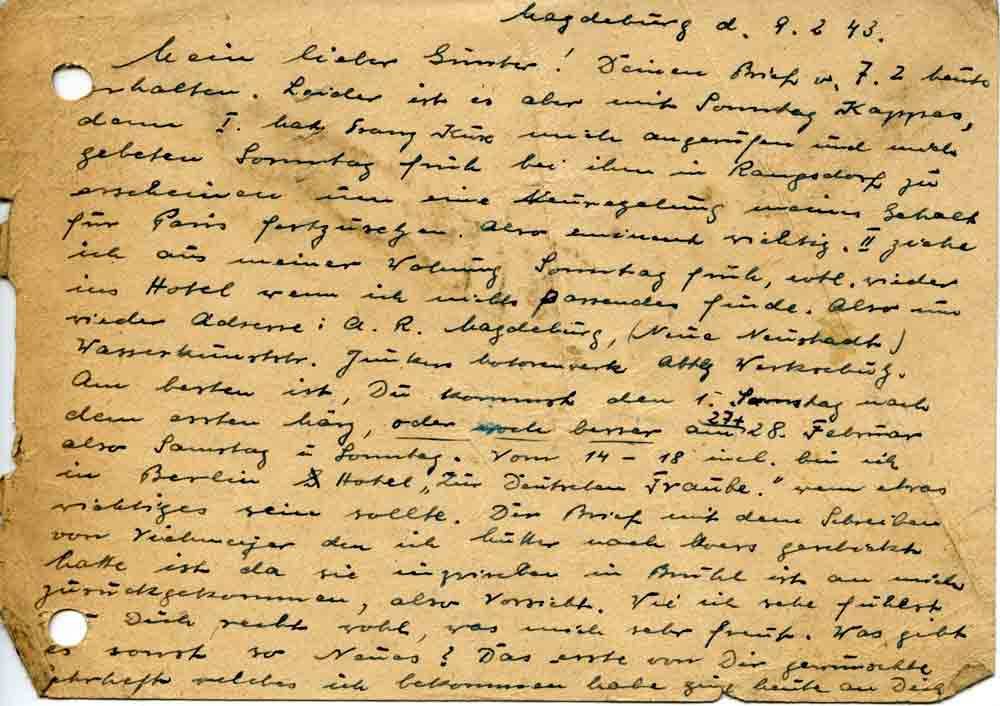 Magdeburg d. 9. 2 43.
Mein lieber Günter! Deinen Brief v. 7. 2 heute
erhalten. Leider ist es aber mit Sonntag Kappes,
denn I. hat Franz Kux mich angerufen und mich
gebeten Sonntag früh bei ihm in Rangsdorf zu
erscheinen um eine Neuregelung meines Gehalt
für Paris festzusetzen. Also eminent wichtig. II ziehe
ich aus meiner Wohnung Sonntag früh, evtl. wieder
ins Hotel wenn ich nichts passendes finde. Also nur
wieder Adresse: A. R. Magdeburg, (Neue Neustadt)
Wasserkunststr. Junkers Motorenwerk Abtlg Werkschutz.
Am besten ist, Du kommst den 1. Samstag nach
dem ersten März, oder noch besser am 27+28. Februar
also Samstag u Sonntag. Vom 14 - 18 incl. bin ich
in Berlin Hotel "Zur Deutschen Traube." wenn etwas
wichtiges sein sollte. Der Brief mit dem Schreiben
von Viehmeijer den ich Mutter nach Moers geschickt
hatte ist da sie inzwischen in Brühl ist an mich
zurückgekommen, also Vorsicht. Wie ich sehe fühlst
Du Dich recht wohl, was mich sehr freut. Was gibt
es sonst so Neues? Das erste von Dir gewünschte
welches ich bekommen habe ging heute an Dich